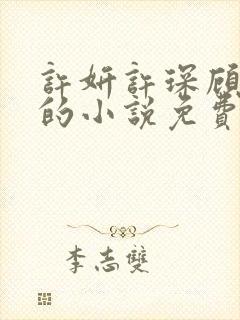 許妍許琛顾
的小說免費
李志雙